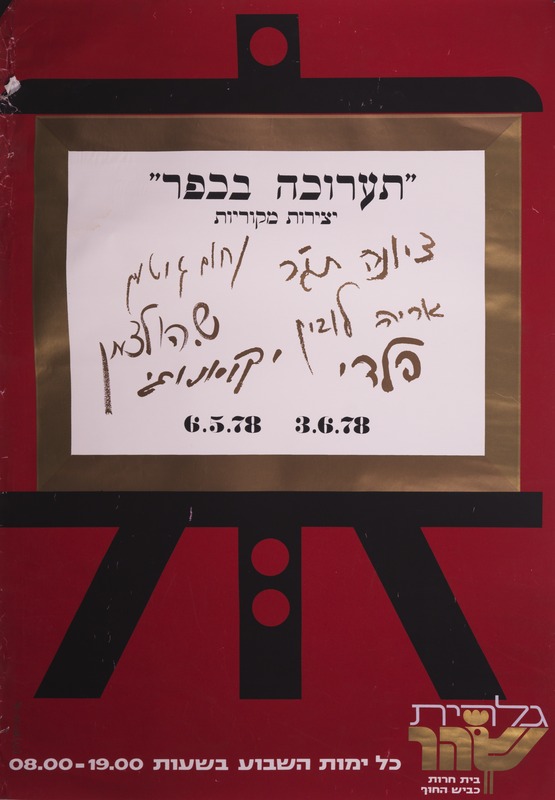 "תערוכה בכפר"
יצירות מקוריות
ציונה תג'ר נחום גוטמן
אריה לובין ש. הולצמן
פלדי יקואנותי
3.6.78 6.5.78
גלרית
שחר
בית חרות
כביש החוף
כל ימות השבוע בשעות 08.00-19.00